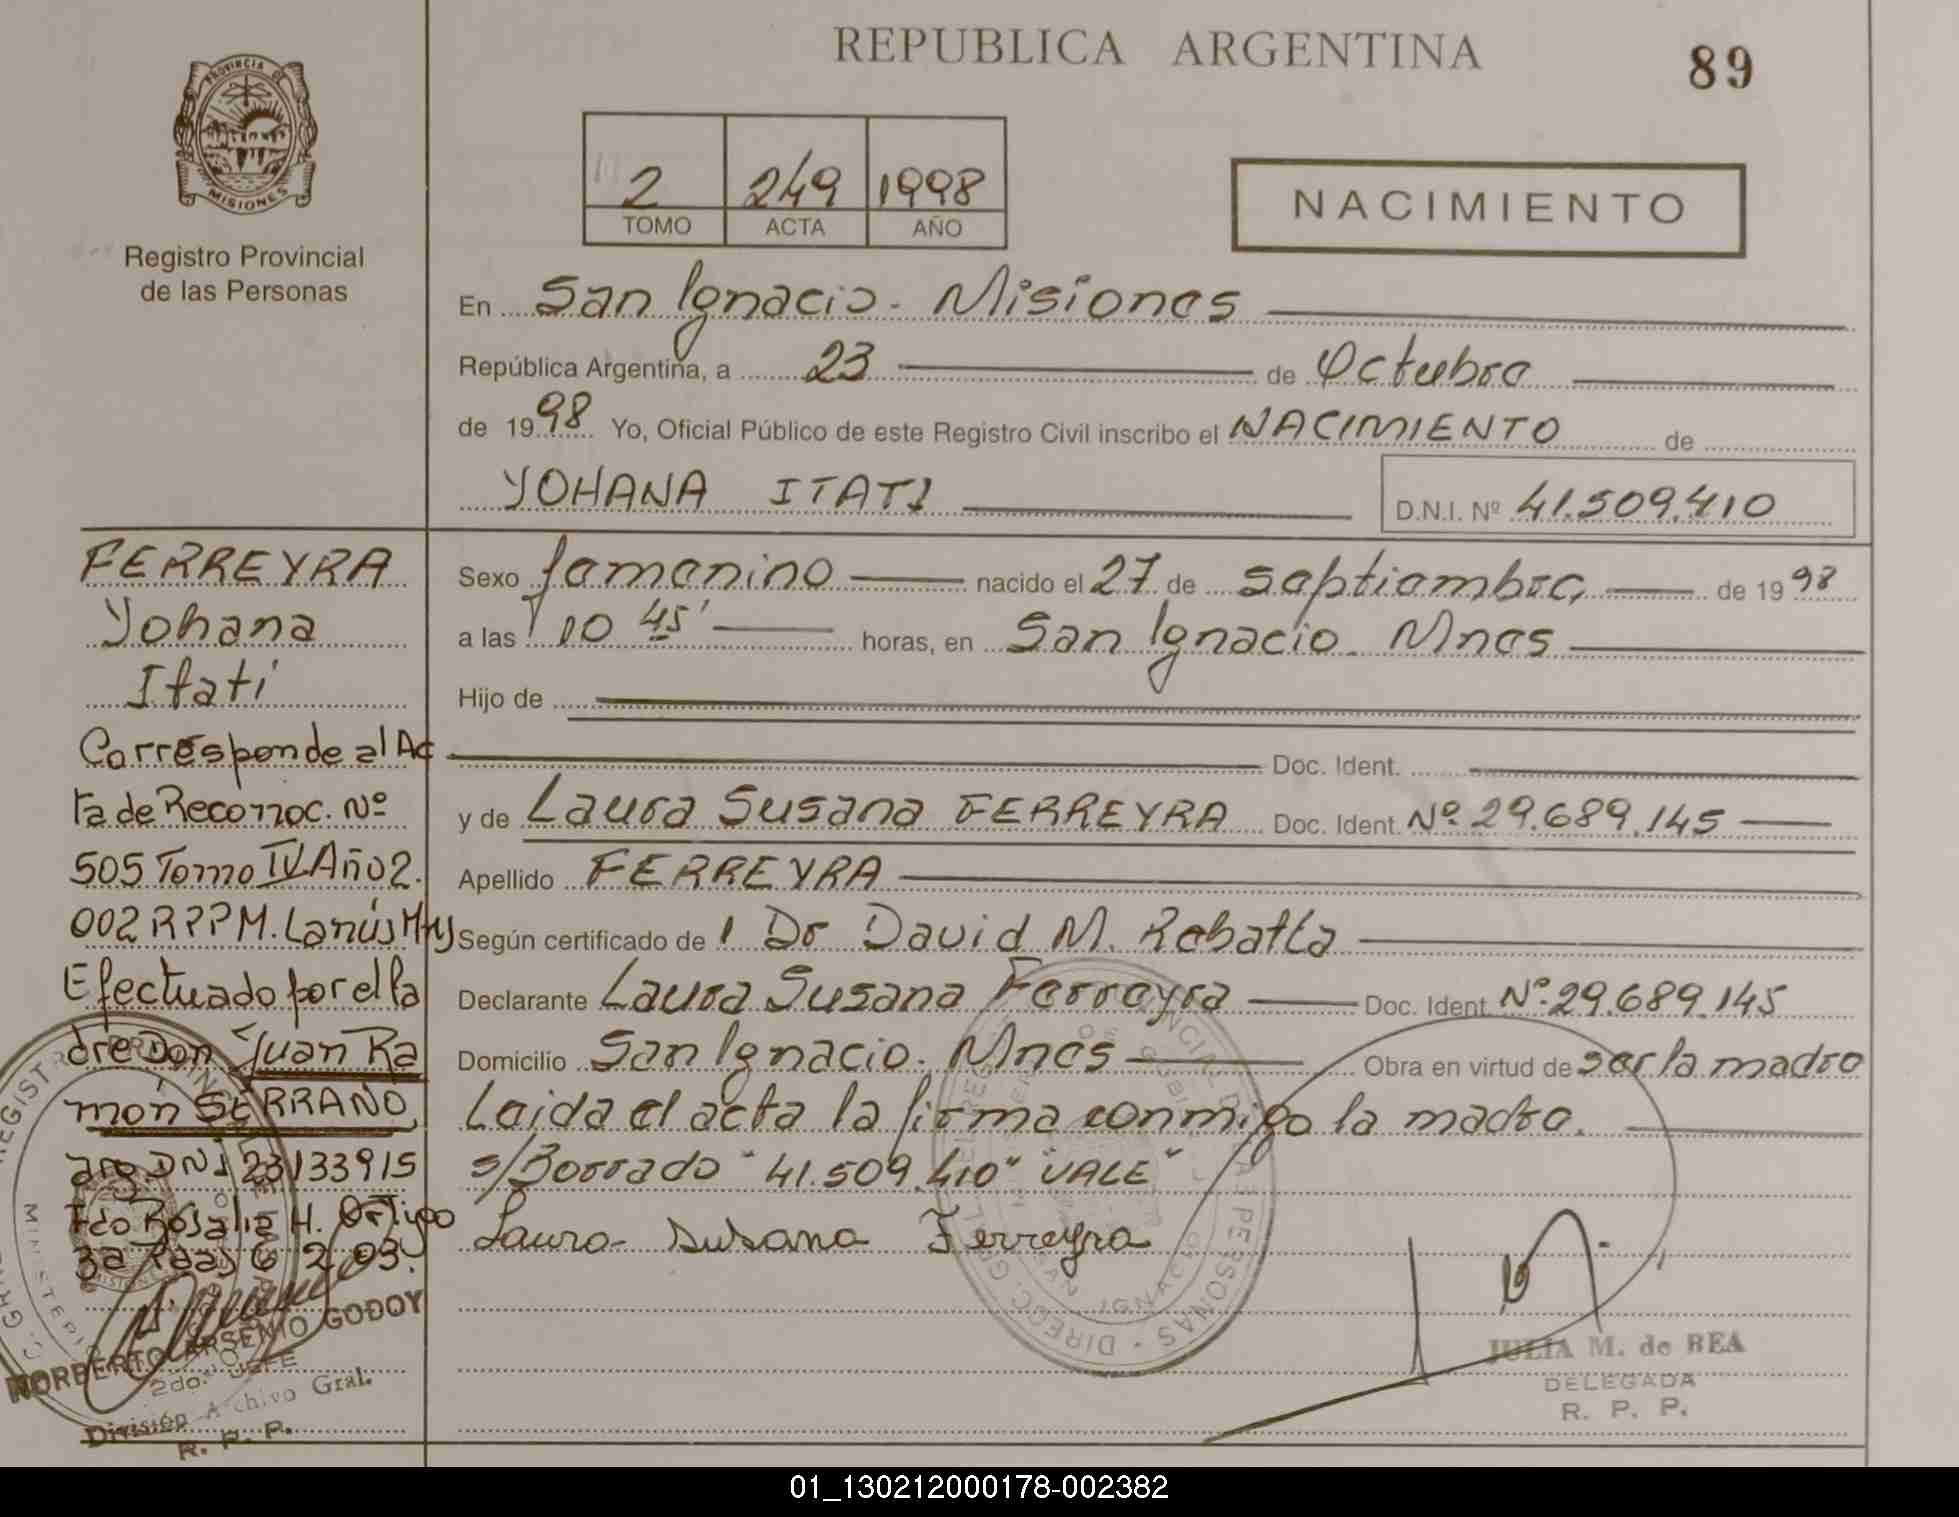 REPUBLICA ARGENTINA
89
PROVINCIA DE
MISIONES
Registro Provincial
de las Personas
2 249 1998
TOMO ACTA AÑO
NACIMIENTO
En San Ignacio - Misiones
República Argentina, a 23 de Octubre
de 1998 Yo, Oficial Público de este Registro Civil inscribo el NACIMIENTO de
YOHANA ITATI
D.N.I. Nº 41.509.410
FERREYRA
Yohana
Itatí
Corresponde al Ac
ta de Reconoc. Nº
505 Tomo IV Año 2.
002 R.P.P M. Lanús Mns
Efectuado por el Pa
dre Don Juan Ra
món SERRANO
arg. DNI 23133915
Fdo Rosalia H. Ortigo
za Pdas 6 2 03.
NORBERTO ARSENIO GODOY
2do. JEFE
División Archivo Gral.
R. P. P.
Sexo femenino nacido el 27 de septiembre, de 1998
a las 10 45' horas, en San Ignacio. Mnes
Hijo de
Doc. Ident.
y de Laura Susana FERREYRA Doc. Ident. Nº 29.689.145
Apellido FERREYRA
Según certificado de 1 Dr David M. Rebatta
Declarante Laura Susana Ferreyra Doc. Ident. Nº 29.689.145
Domicilio San Ignacio. Mnes Obra en virtud de ser la madre
Leida el acta la firma conmigo la madre.
s/Borrado "41.509.410" "VALE"
Laura Susana Ferreyra
JULIA M. de BEA
DELEGADA
R. P. P.
01_130212000178-002382